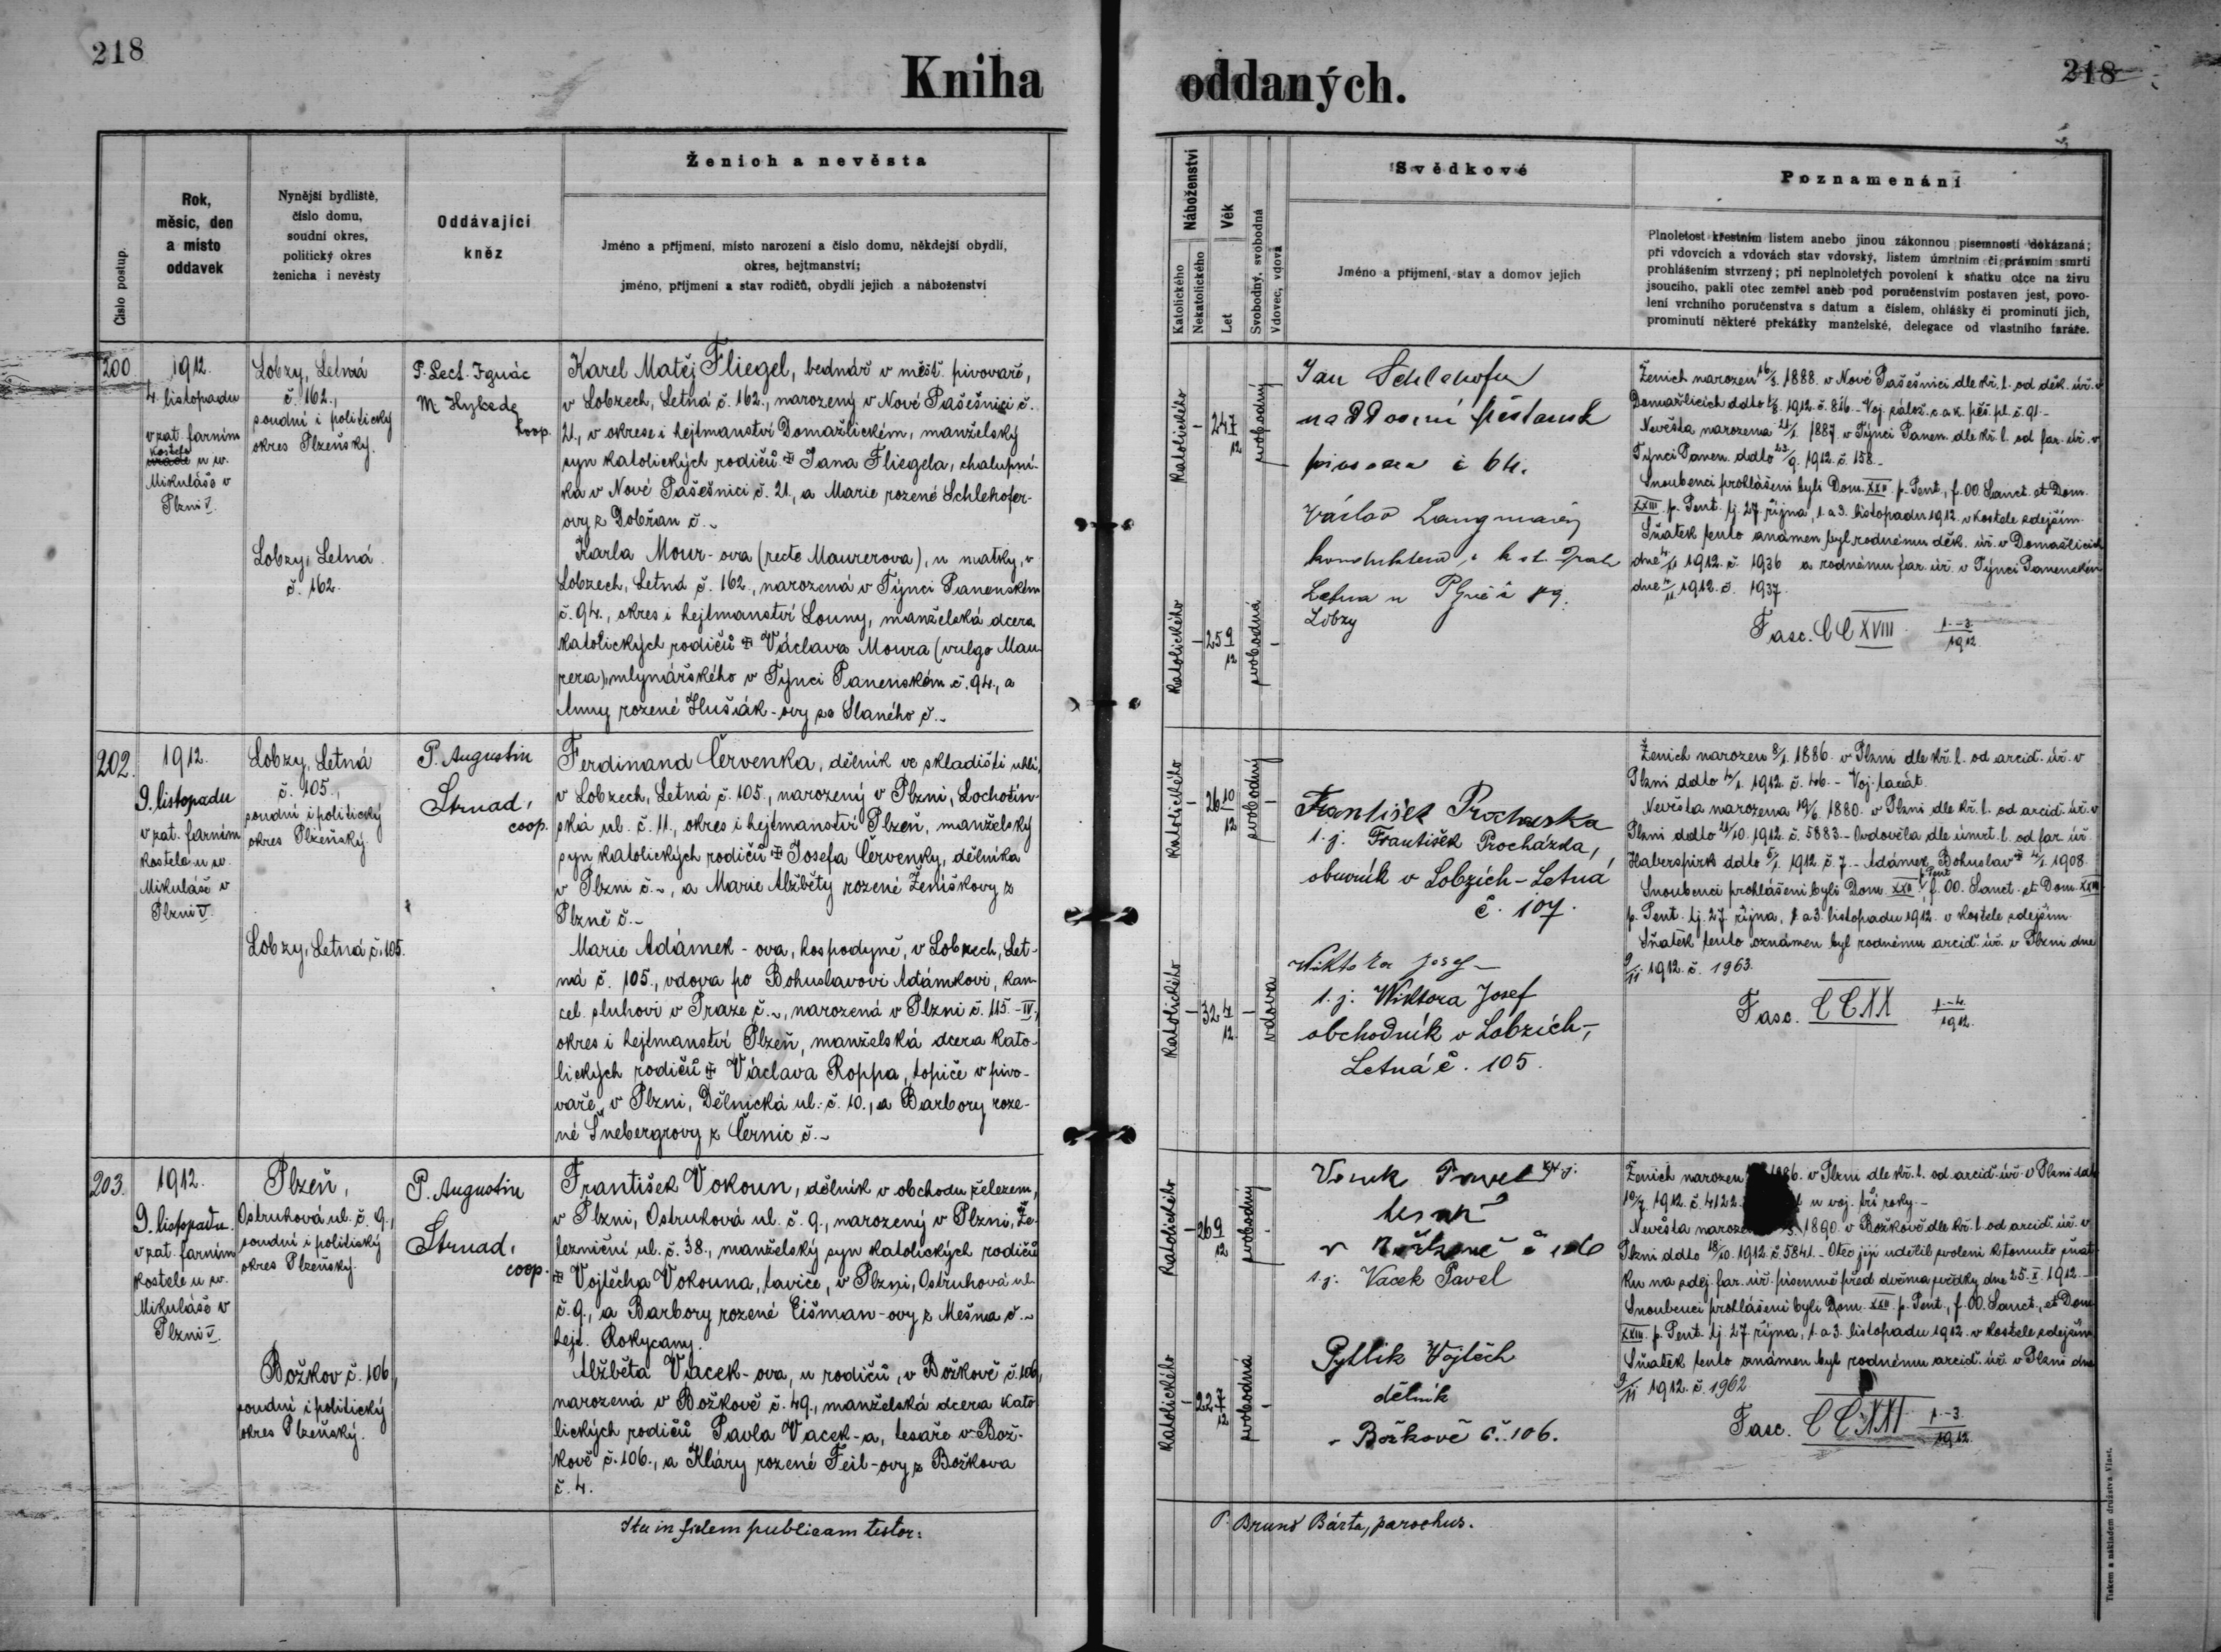 218
Kniha
oddaných.
218
Číslo postup.
Rok,
měsíc, den
a místo
oddavek
Nynější bydliště,
číslo domu,
soudní okres,
politický okres
ženicha i nevěsty
Oddávající
kněz
Ženich a nevěsta
Jméno a příjmení, místo narození a číslo domu, někdejší obydlí,
okres, hejtmanství;
jméno, příjmení a stav rodičů, obydlí jejich a náboženství
Náboženství
Katolického
Nekatolického
Věk
Let
Svobodný, svobodná
Vdovec, vdova
Svědkové
Jméno a příjmení, stav a domov jejich
Poznamenání
Plnoletost křestním listem anebo jinou zákonnou písemností dokázaná;
při vdovcích a vdovách stav vdovský, listem úmrtním či právním smrti
prohlášením stvrzený; při neplnoletých povolení k sňatku otce na živu
jsoucího, pakli otec zemřel aneb pod poručenstvím postaven jest, povo-
lení vrchního poručenstva s datum a číslem, ohlášky či prominutí jich,
prominutí některé překážky manželské, delegace od vlastního faráře.
200.
1912.
4. listopadu
v zat. farním
kostele
úřadě u sv.
Mikuláše v
Plzni V.
Lobzy, Letná
č. 162.,
soudní i politický
okres Plzeňský.
Lobzy, Letná
č. 162.
P. Lect. Ignác
M Hykede
koop.
Karel Matěj Fliegel, bednář v měšť. pivovaře,
v Lobzech, Letná č. 162., narozený v Nové Pašešnici č.
21., v okrese i hejtmanství Domažlickém, manželský
syn katolických rodičů Jana Fliegela, chalupní-
ka v Nové Pašešnici č. 21., a Marie rozené Schlehofer-
ovy z Dobřan č. ~
Karla Mour-ova (recte Maurerova), u matky, v
Lobzech, Letná č. 162., narozená v Týnci Panenském
č. 94., okres i hejtmanství Louny, manželská dcera
katolických rodičů Václava Moura (vulgo Mau-
rera), mlynářského v Týnci Panenském č. 94., a
Anny rozené Husiák-ovy ze Slaného č. ~
Katolického
24 7/12
svobodný
Katolického
25 9/12
svobodná
Jan Schlehofer
č 64.
Václav
Letna u Plzně č 89.
Lobzy
Ženich narozen 16/3. 1888. v Nové Pašešnici dle kř. l. od děk. úř. v
Domažlicích ddto 1/8. 1912. č. 816. - Voj. zálož. c. a k. pěš. pl. č. 91. -
Nevěsta narozena 21/1. 1887. v Týnci Panen. dle kř. l. od far. úř. v
Týnci Panen. ddto 22/9. 1912. č. 158. -
Snoubenci prohlášeni byli Dom. XXII. p. Pent., f. OO. Sanct. et Dom.
XXIII. p. Pent. tj. 27. října, 1. a 3. listopadu 1912. v kostele zdejším.
Sňatek tento oznámen byl rodnému děk. úř. v Domažlicích
dne 4/11 1912. č. 1936 a rodnému far. úř. v Týnci Panenském
dne 4/11 1912. č. 1937.
Fasc. CCXVIII 1.-3./1912
202.
1912.
9. listopadu
v zat. farním
kostele u sv.
Mikuláše v
Plzni V.
Lobzy, Letná
č. 105.,
soudní i politický
okres Plzeňský.
Lobzy, Letná č. 105.
P. Augustin
Strnad,
coop.
Ferdinand Červenka, dělník ve skladišti uhlí,
v Lobzech, Letná č. 105., narozený v Plzni, Lochotín-
ská ul. č. 11., okres i hejtmanství Plzeň, manželský
syn katolických rodičů Josefa Červenky, dělníka
v Plzni č. ~, a Marie Alžběty rozené Ženíškovy z
Plzně č. ~
Marie Adámek-ova, hospodyně, v Lobzech, Let-
ná č. 105., vdova po Bohuslavovi Adámkovi, kan-
cel. sluhovi v Praze č. ~, narozená v Plzni č. 115.-IV.,
okres i hejtmanství Plzeň, manželská dcera kato-
lických rodičů Václava Roppa, topiče v pivo-
vaře, v Plzni, Dělnická ul. č. 10., a Barbory roze-
né Šnebergrovy z Černic č. ~
Katolického
26 10/12
svobodný
Katolického
32 4/12
vdova
František Procházka
t. j. František Procházka,
obuvník v Lobzích-Letná
č. 107.
Wiktora Josef
t. j. Wiktora Josef
obchodník v Lobzích,
Letná č. 105.
Ženich narozen 8/1. 1886. v Plzni dle kř. l. od arcid. úř. v
Plzni ddto 4/1. 1912. č. 46. - Voj. taxát.
Nevěsta narozena 19/6. 1880. v Plzni dle kř. l. od arcid. úř. v
Plzni ddto 21/10. 1912. č. 5883. - Ovdověla dle úmrt. l. od far. úř.
Haberspirk ddto 5/1. 1912. č. 7. - Adámek Bohuslav 4/1. 1908.
Snoubenci prohlášeni byli Dom. XXII. p. Pent., f. OO. Sanct. et Dom. XXIII.
p. Pent. tj. 27. října, 1. a 3. listopadu 1912. v kostele zdejším.
Sňatek tento oznámen byl rodnému arcid. úř. v Plzni dne
9/11 1912. č. 1963.
Fasc. CCXX 1.-4./1912.
203.
1912.
9. listopadu.
v zat. farním
kostele u sv.
Mikuláše v
Plzni V.
Plzeň,
Ostruhová ul. č. 9.,
soudní i politický
okres Plzeňský.
Božkov č. 106,
soudní i politický
okres Plzeňský.
P. Augustin
Strnad,
coop.
František Vokoun, dělník v obchodu železem,
v Plzni, Ostruhová ul. č. 9., narozený v Plzni, Že-
lezniční ul. č. 38., manželský syn katolických rodičů
Vojtěcha Vokouna, taviče, v Plzni, Ostruhová ul.
č. 9., a Barbory rozené Eišman-ovy z Mešna č. ~
hejt. Rokycany.
Alžběta Vacek-ova, u rodičů, v Božkově č. 106,
narozená v Božkově č. 49., manželská dcera kato
lických rodičů Pavla Vacek-a, tesaře v Bož-
kově č. 106., a Kláry rozené Feil-ovy z Božkova
č. 4.
Katolického
26 9/12
svobodný
Katolického
22 7/12
svobodná
Pavel
tesař
v Božkově č 106
t. j. Vacek Pavel
Pytlik Vojtěch
dělník
v Božkově č. 106.
Ženich narozen 1886. v Plzni dle kř. l. od arcid. úř. v Plzni ddto
10/7. 1912. č. 4122. u voj. tři roky. -
Nevěsta naroze 1890. v Božkově dle kř. l. od arcid. úř. v
Plzni ddto 18/10. 1912. č. 5841. - Otec její udělil svolení k tomuto sňat-
ku na zdej. far. úř. písemně před dvěma svědky dne 25. X. 1912. -
Snoubenci prohlášeni byli Dom. XXII. p. Pent., f. OO. Sanct., et Dom.
XXIII. p. Pent. tj. 27. října, 1. a 3. listopadu 1912. v kostele zdejším.
Sňatek tento oznámen byl rodnému arcid. úř. v Plzni dne
9/11 1912. č. 1962.
Fasc. CCXXI 1.-3./1912.
Ita in fidem publicam testor:
P. Bruno Bárta, parochus.
Tiskem a nákladem družstva Vlast.